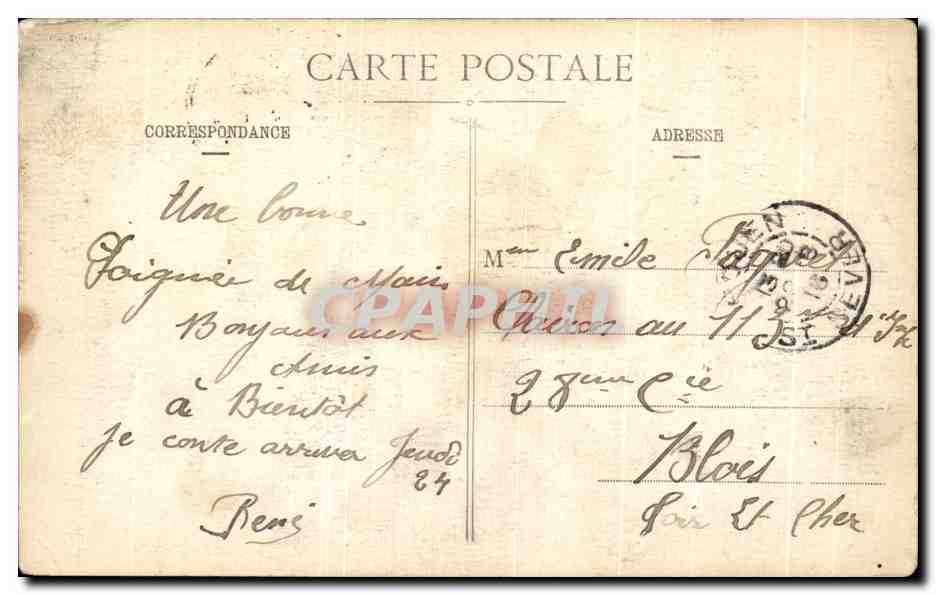 CARTE POSTALE
CORRESPONDANCE
Une bonne
Poignée de Main
Bonjour aux
Amis
à Bientôt
je conte arriver Jeudi
24
René
ADRESSE
M Emile
Clairon au 113
28eme Cie
Blois
Loir Et Cher
CPAPHIL